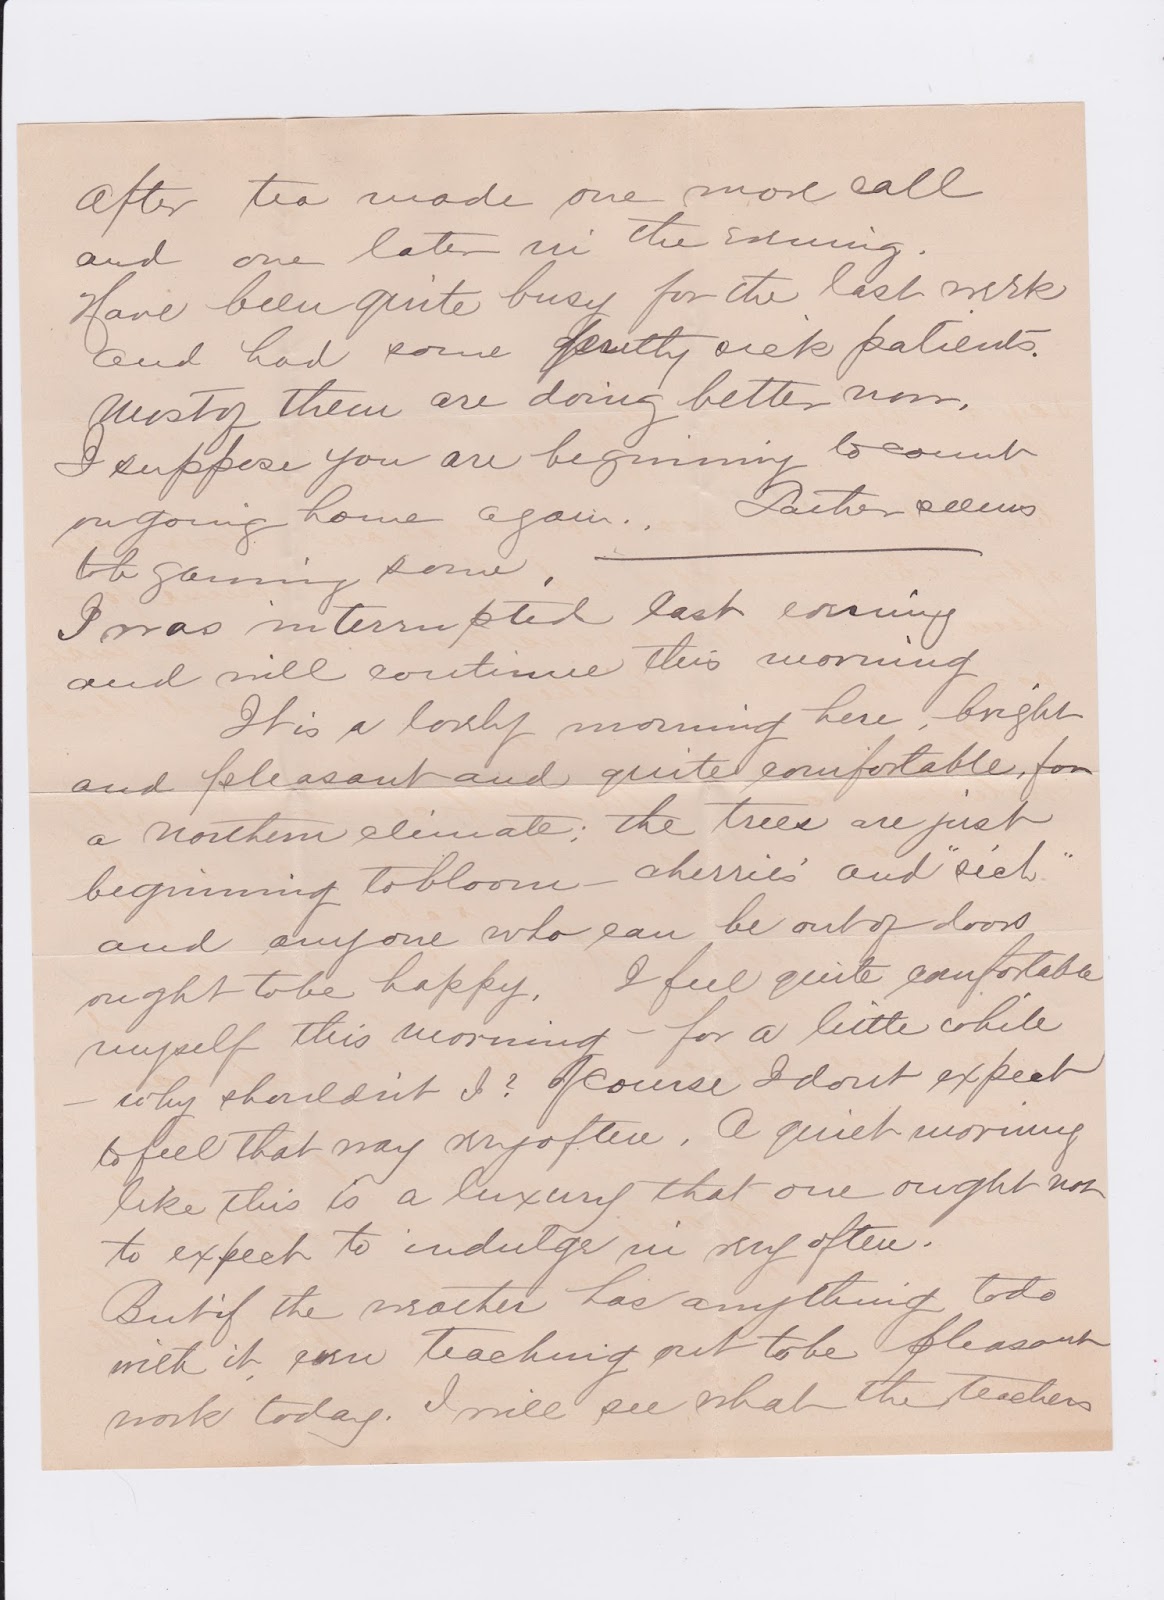 After tea made one more call
and one later in the evening.
Have been quite busy for the last week
and had some pretty sick patients.
Most of them are doing better now.
I suppose you are beginning to count
on going home again.. Father seems
to be gaining some.
I was interrupted last evening
and will continue this morning
It is a lovely morning here, - bright
and pleasant and quite comfortable, for
a northern climate; the trees are just
beginning to bloom - cherries and "sich"
and anyone who can be out of doors
ought to be happy. I feel quite comfortable
myself this morning - for a little while
- why shouldn't I? Of course I dont expect
to feel that way very often. A quiet morning
like this is a luxury that one ought not
to expect to indulge in very often.
But if the weather has anything to do
with it, even teaching out to be pleasant
work today. I will see what the teachers